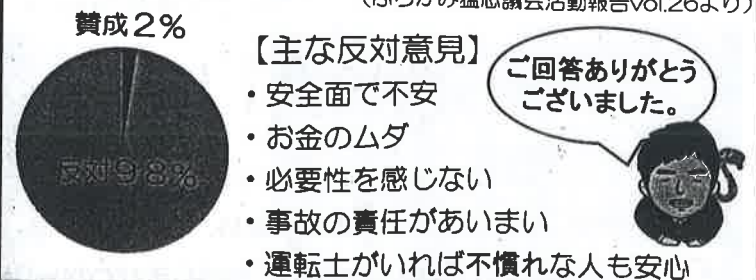 議会活動報告Vol.26より）
賛成2%
反対98%
【主な反対意見】
・安全面で不安
・お金のムダ
・必要性を感じない
・事故の責任があいまい
・運転士がいれば不慣れな人も安心
ご回答ありがとう
ございました。